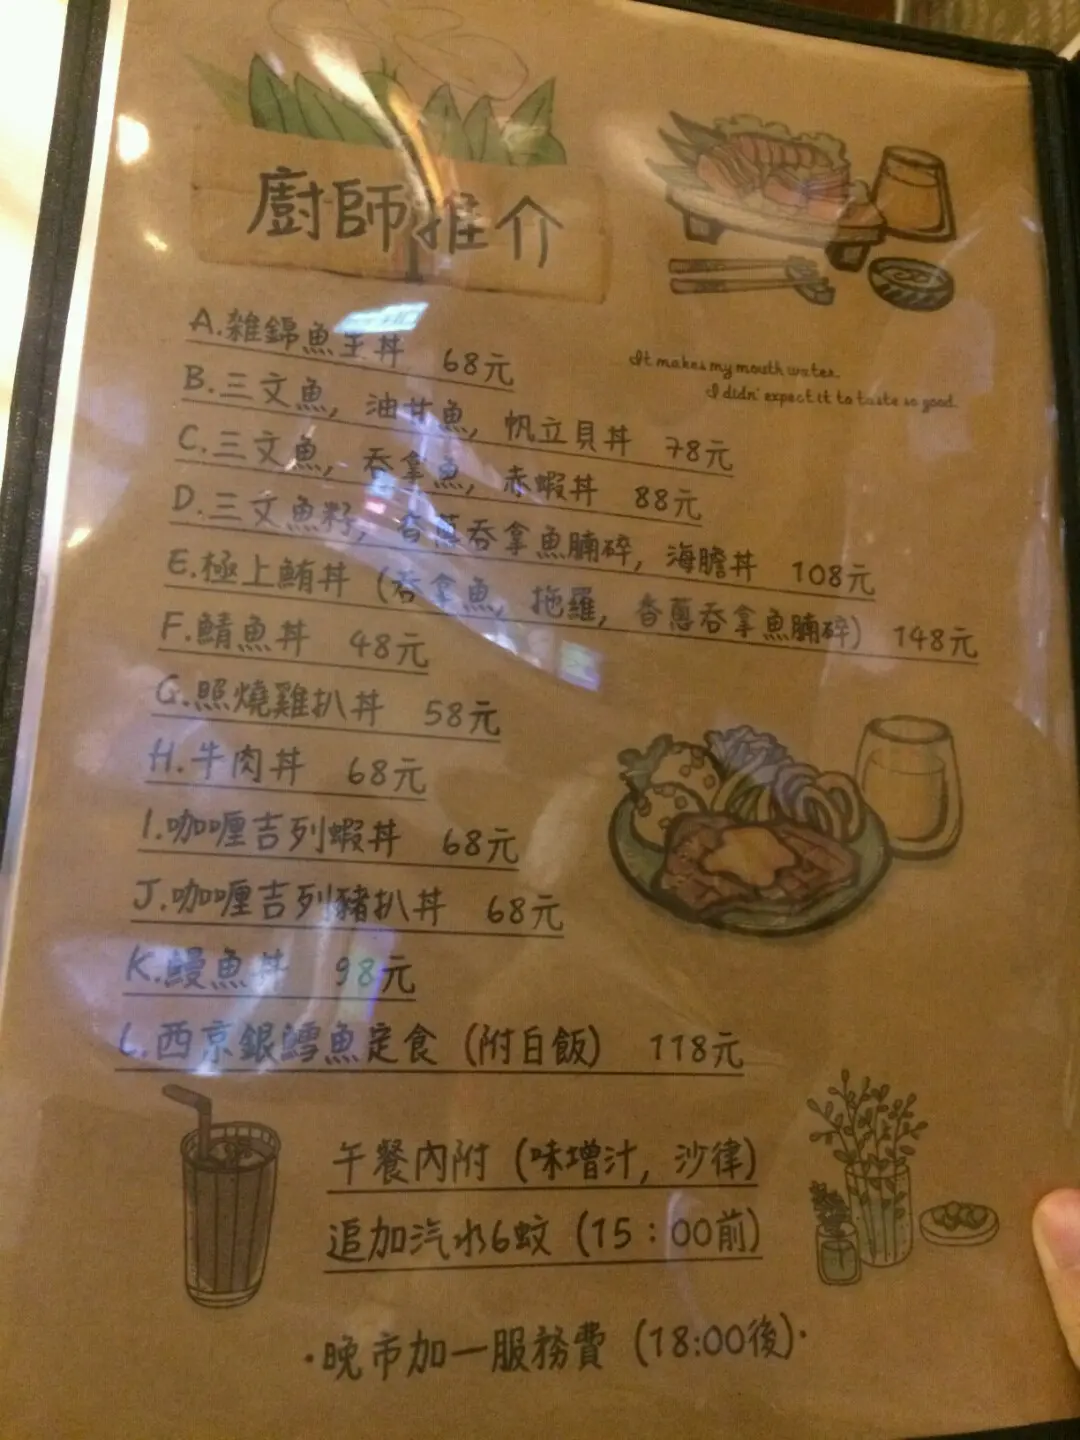 廚師推介
A.雜錦魚生丼 68元
It makes my mouth water.
I didn' expect it to taste so good.
B.三文魚, 油甘魚, 帆立貝丼 78元
C.三文魚, 吞拿魚, 赤蝦丼 88元
D.三文魚籽, 香蔥吞拿魚腩碎, 海膽丼 108元
E.極上鮪丼 (吞拿魚, 拖羅, 香蔥吞拿魚腩碎) 148元
F.鯖魚丼 48元
G.照燒雞扒丼 58元
H.牛肉丼 68元
I.咖喱吉列蝦丼 68元
J.咖喱吉列豬扒丼 68元
K.鰻魚丼 98元
L.西京銀鱈魚定食 (附白飯) 118元
午餐內附 (味增汁, 沙律)
追加汽水6蚊 (15：00前)
·晚市加一服務費 (18:00後)·